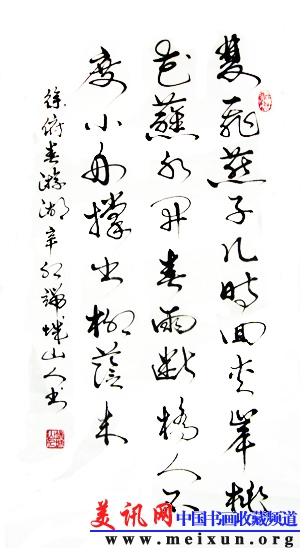 雙飛燕子几時回夾岸桃
花蘸水开春雨断橋人不
度小舟撑出柳蔭来
徐俯春游湖辛卯城山人书
美讯网中国书画收藏频道
www.meixun.org